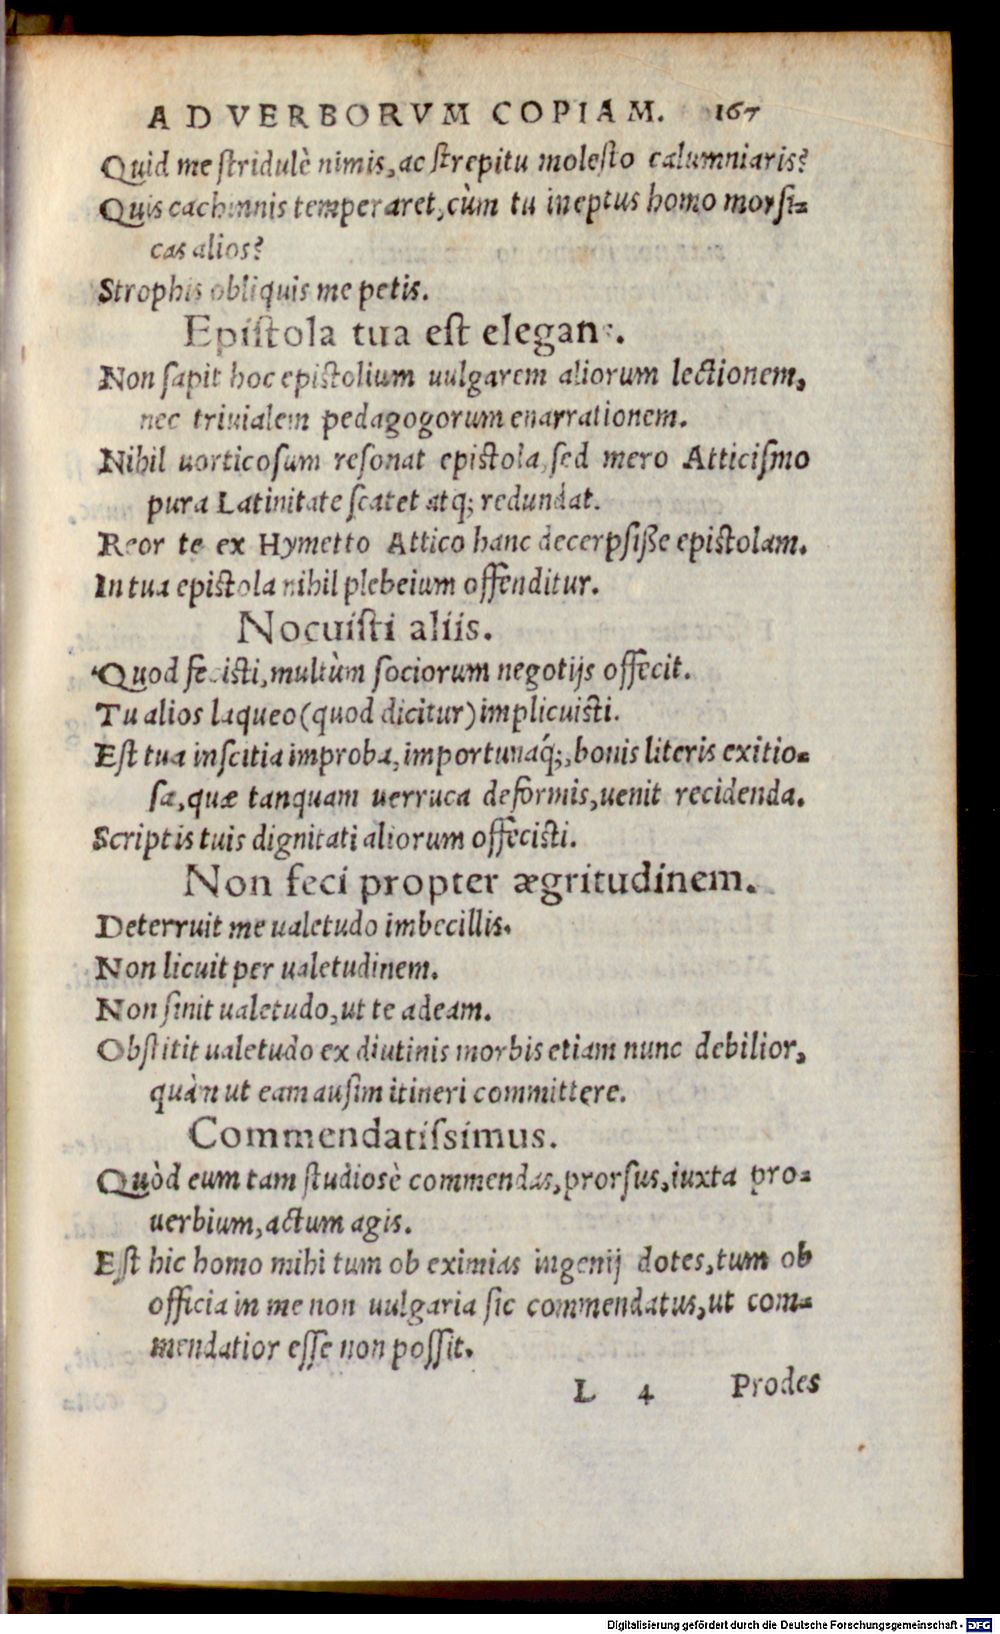 AD VERBORVM COPIAM. 167
Quid me ſtridulè nimis, ac ſtrepitu moleſto calumniaris?
Quis cachinnis temperaret, cùm tu ineptus homo morſi=
cas alios?
Strophis obliquis me petis.
Epiſtola tua eſt elegans.
Non ſapit hoc epiſtolium uulgarem aliorum lectionem,
nec triuialem pedagogorum enarrationem.
Nihil uorticoſum reſonat epiſtola, ſed mero Atticiſmo
pura Latinitate ſcatet atq; redundat.
Reor te ex Hymetto Attico hanc decerpſiße epiſtolam.
In tua epiſtola nihil plebeium offenditur.
Nocuiſti aliis.
Quod feciſti, multùm ſociorum negotijs offecit.
Tu alios laqueo (quod dicitur) implicuiſti.
Eſt tua inſcitia improba, importunaq́;, bonis literis exitio=
ſa, quæ tanquam uerruca deformis, uenit recidenda.
Scriptis tuis dignitati aliorum offeciſti.
Non feci propter ægritudinem.
Deterruit me ualetudo imbecillis.
Non licuit per ualetudinem.
Non ſinit ualetudo, ut te adeam.
Obſtitit ualetudo ex diutinis morbis etiam nunc debilior,
quàm ut eam auſim itineri committere.
Commendatiſsimus.
Quòd eum tam ſtudioſè commendas, prorſus, iuxta pro=
uerbium, actum agis.
Eſt hic homo mihi tum ob eximias ingenij dotes, tum ob
officia in me non uulgaria ſic commendatus, ut com=
mendatior eſſe non poſſit.
L 4 Prodes
Digitalisierung gefördert durch die Deutsche Forschungsgemeinschaft - DFG